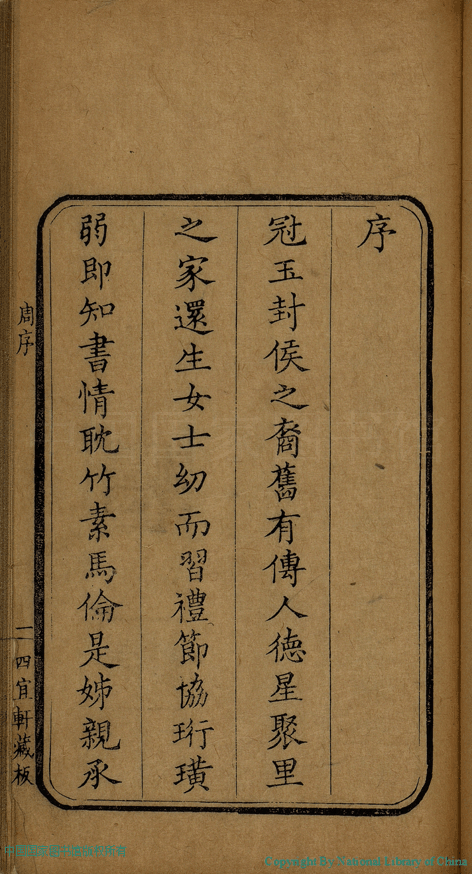 序
冠玉封侯之裔舊有傳人德星聚里
之家還生女士幼而習禮節協珩璜
弱即知書情耽竹素馬倫是姊親承
周序
一 四宜軒藏板
Copyright By National Library of China